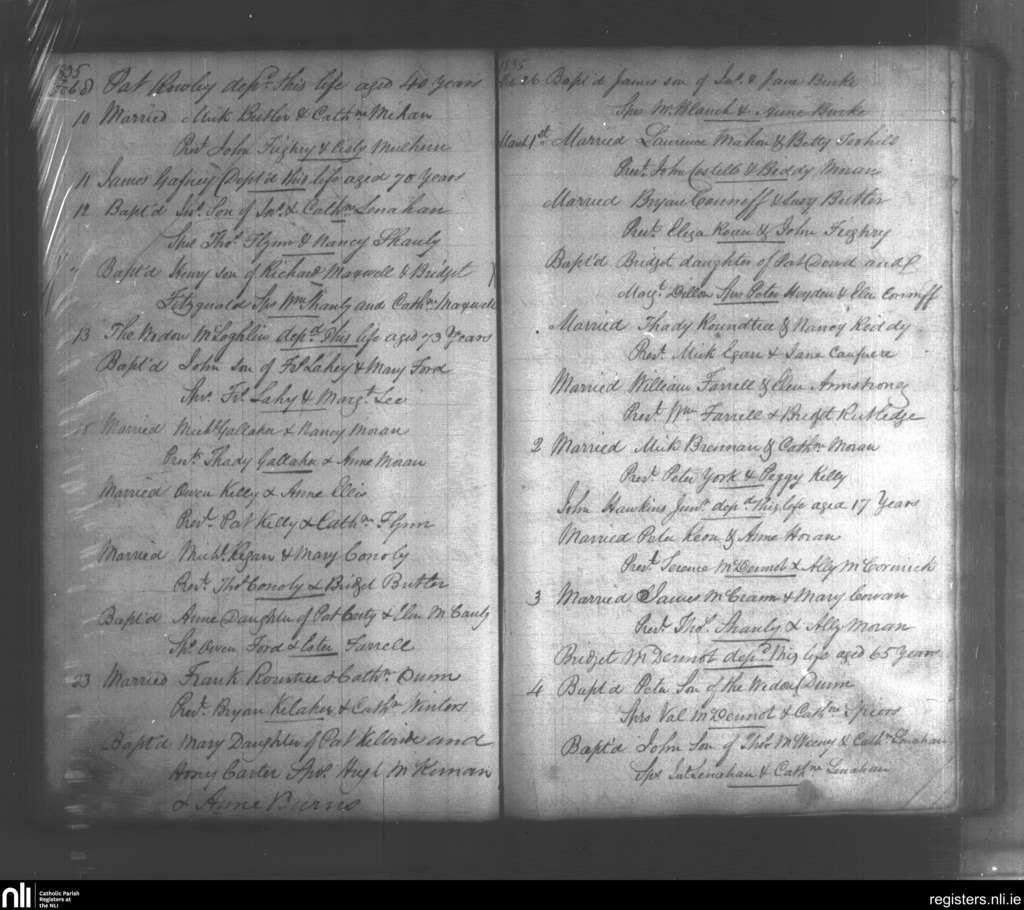 1835
Feb 8 Pat Rowley dep.d this life aged 40 years
10 Married Mick Butler & Cath.ne Mihan
Pres.t John Fighry & Cisly Mulhern
11 James Gafney Dept'd this life aged 70 Years
12 Bapt'd Jno. Son of Jno. & Cath.ne Lenahan
Sprs Tho.s Flynn & Nancy Shanly
" Bapt'd Henry son of Richard Maxwell & Bridget
Fitzgerald Sprs Wm Shanly and Cath.ne Maxwell
13 The Widow McLoghlin dep.d this life aged 73 Years
Bapt'd John Son of Fr.s Lahey & Mary Ford
Sprs. Fr.s Lahy & Marg.t Lee
18 Married Mich.l Gallaher & Nancy Moran
Pres.t Thady Gallaher & Anne Moran
Married Owen Kelly & Anne Ellis
Pres.t Pat Kelly & Cath.ne Flynn
Married Mich.l Regan & Mary Conoly
Pres.t Tho.s Conoly & Bridget Butler
Bapt'd Anne Daughter of Pat Certy & Elen McCauly
Sprs Owen Ford & Ester Farrell
23 Married Frank Rountree & Cath.ne Dunn
Pres.t Bryan Kelaher & Cath.ne Winters
Bapt'd Mary Daughter of Pat Kelbride and
Hony Carter Sprs. Hugh McKernan
& Anne Burns
1835
Feb 26 Bapt'd James son of Jno. & Jane Burke
Sprs W. Blanch & Anne Burke
March 1st Married Laurence Mahon & Betty Toohils
Pres.t John Costello & Biddy Moran
Married Bryan Connoff & Lucy Butler
Pres.t Eliza Kean & John Fighry
Bapt'd Bridget daughter of Pat Dowd and
Marg.t Dillon Sprs Peter Heyden & Elen Connoff
Married Thady Roundtree & Nancy Reddy
Pres.t Mick Egan & Jane
Married William Farrell & Elen Armstrong
Pres.t Wm Farrell & Bridget Rutledge
2 Married Mick Brennan & Cath.ne Moran
Pres.t Peter York & Peggy Kelly
John Hawkins Jun.r dep.d this life aged 17 Years
Married Peter Keon & Anne Horan
Pres.t Terence McDermot & Ally McCormick
3 Married James McCrann & Mary Cowan
Pres.t Tho.s Shanly & Ally Moran
Bridget McDermot dep.d this life aged 65 Years
4 Bapt'd Peter Son of the Widow Dunn
Sprs Val McDermot & Cath.ne Speers
Bapt'd John Son of Tho.s McWeeny & Cath.ne Lenahan
Sprs Jno Lenahan & Cath.ne Lenahan
nli
Catholic Parish
Registers at
the NLI
registers.nli.ie